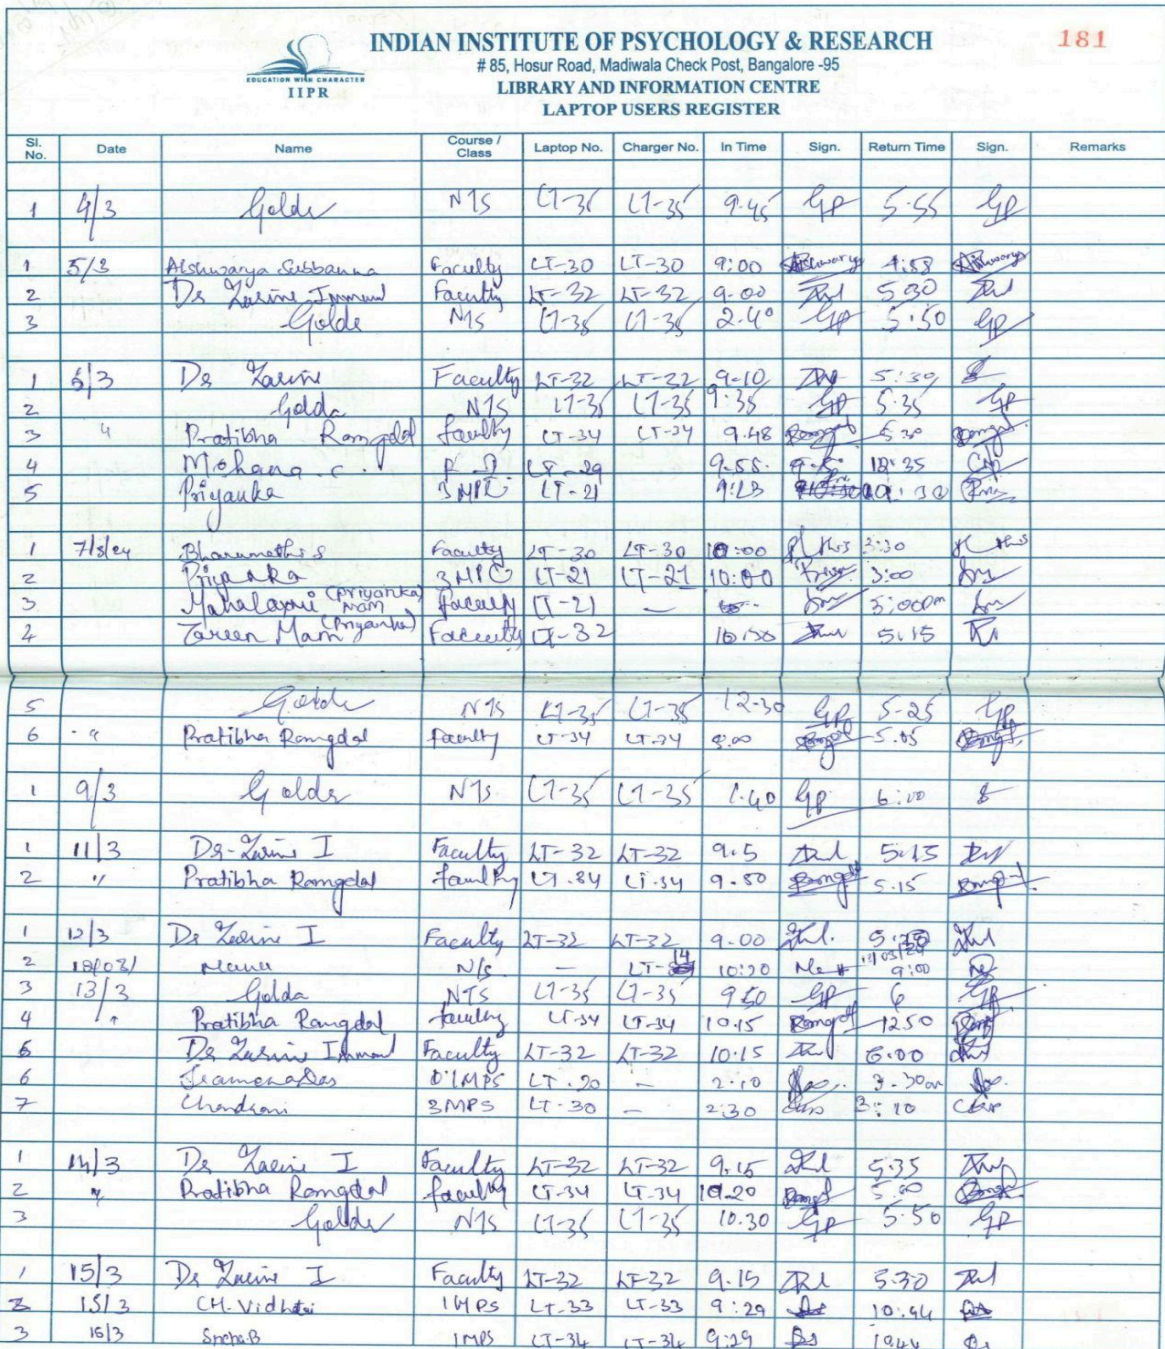 INDIAN INSTITUTE OF PSYCHOLOGY & RESEARCH 181
# 85, Hosur Road, Madiwala Check Post, Bangalore -95
EDUCATION WITH CHARACTER
IIPR
LIBRARY AND INFORMATION CENTRE
LAPTOP USERS REGISTER
Sl. No. Date Name Course / Class Laptop No. Charger No. In Time Sign. Return Time Sign. Remarks
1 4/3 Golda NTS LT-35 LT-35 9.45 GP 5.55 GP
1 5/3 Aishwarya Subbanna Faculty LT-30 LT-30 9:00 Aishwarya 4:58 Aishwarya
2 Dr Zarine Immanuel Faculty LT-32 LT-32 9.00 5.30
3 Golda NTS LT-35 LT-35 2.40 GP 5.50 GP
1 6/3 Dr Zarine Faculty LT-32 LT-32 9-10 5:30
2 Golda NTS LT-35 LT-35 9:35 GP 5.35 GP
3 " Pratibha Ramgdal faculty LT-34 LT-34 9.48 5.30
4 Mohana . c . LT-29 9.55. 12.35
5 Priyanka 3MPC LT-21
1 7/3/24 Bharamathi S Faculty LT-30 LT-30 10:00 3:30
2 Priyanka 3MPC LT-21 LT-21 10:00 3:00
3 Mahalaxmi mam (Priyanka) faculty LT-21 — 3:00pm
4 Zareen Mam (Priyanka) Faculty LT-32 5.15
5 Golda NTS LT-35 LT-35 12-30 GP 5-25 GP
6 " Pratibha Ramgdal Faculty LT-34 LT-34 5.05
1 9/3 Golda NTS LT-35 LT-35 1.40 GP 6:00
1 11/3 Dr-Zarine I Faculty LT-32 LT-32 9.5 5.15
2 " Pratibha Ramgdal faculty LT-34 LT-34 9.50 5.15
1 12/3 Dr Zarine I Faculty LT-32 LT-32 9.00
2 Manu N/s. — 10:20 9:00
3 13/3 Golda NTS LT-35 LT-35 9.50 GP 6 GP
4 " Pratibha Ramgdal faculty LT-34 LT-34 10.15 12.50
5 Dr Zarine Immanuel Faculty LT-32 LT-32 10.15 6.00
6 LT-20 — 2.10
7 Chandrani 3MPS LT-30 — 2:30 3:10
1 14/3 Dr Zarine I Faculty LT-32 LT-32 9.15 5.35
2 " Pratibha Ramgdal faculty LT-34 LT-34 10.20
3 Golda NTS LT-35 LT-35 10.30 GP 5.50 GP
1 15/3 Dr Zarine I Faculty LT-32 LT-32 9.15 5.30
2 15/3 CH. Vidhatri 1MPS LT-33 LT-33 9:29 10.44
3 15/3 Sneha B 1MPS LT-34 LT-34 9:29 10.44